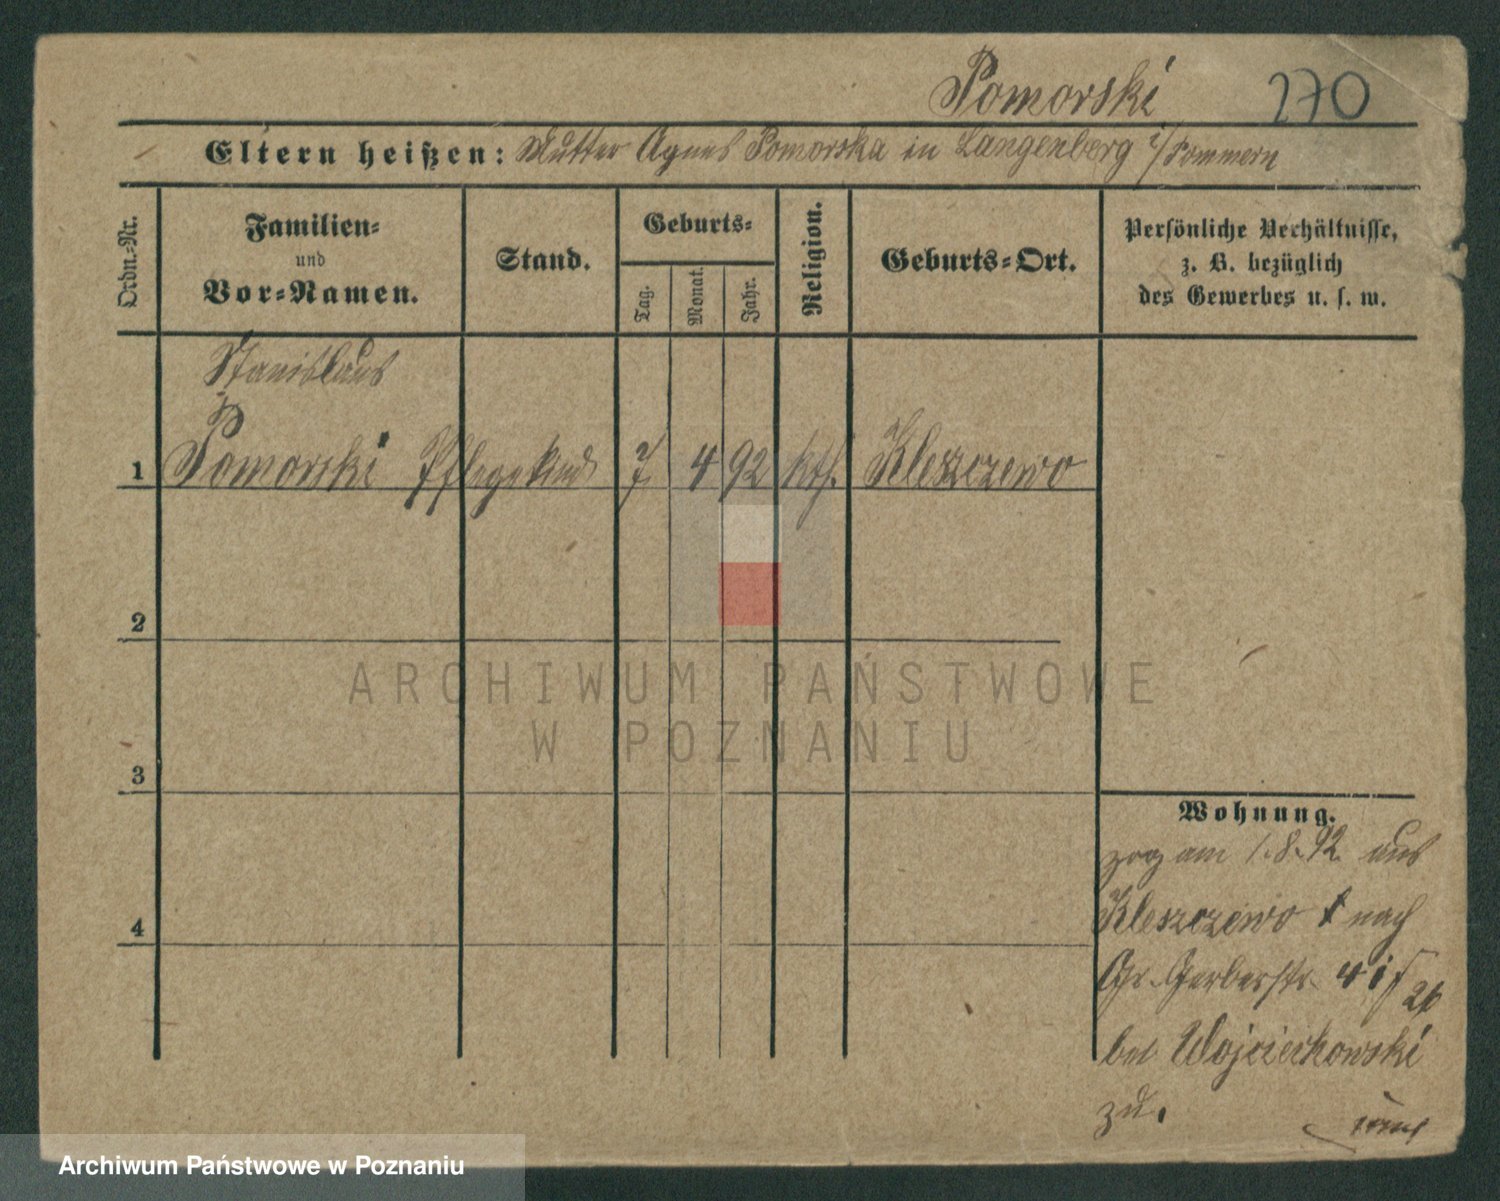 Pomorski 270
Eltern heißen: Mutter Agnes Pomorska in Langenberg i/Pommern
Ordn.-Nr.
Familien- und Vor-Namen.
Stand.
Geburts-
Tag.
Monat.
Jahr.
Religion.
Geburts-Ort.
Persönliche Verhältnisse,
z. B. bezüglich
des Gewerbes u. s. w.
Stanislaus
1 Pomorski Pflegekind 7 4 92 kth. Kleszczewo
2
3
4
Wohnung.
zog am 1.8.92 aus
Kleszczewo nach
Gr. Gerberstr. 41
bei Wojciechowski
zu.
ARCHIWUM PAŃSTWOWE
W POZNANIU
Archiwum Państwowe w Poznaniu